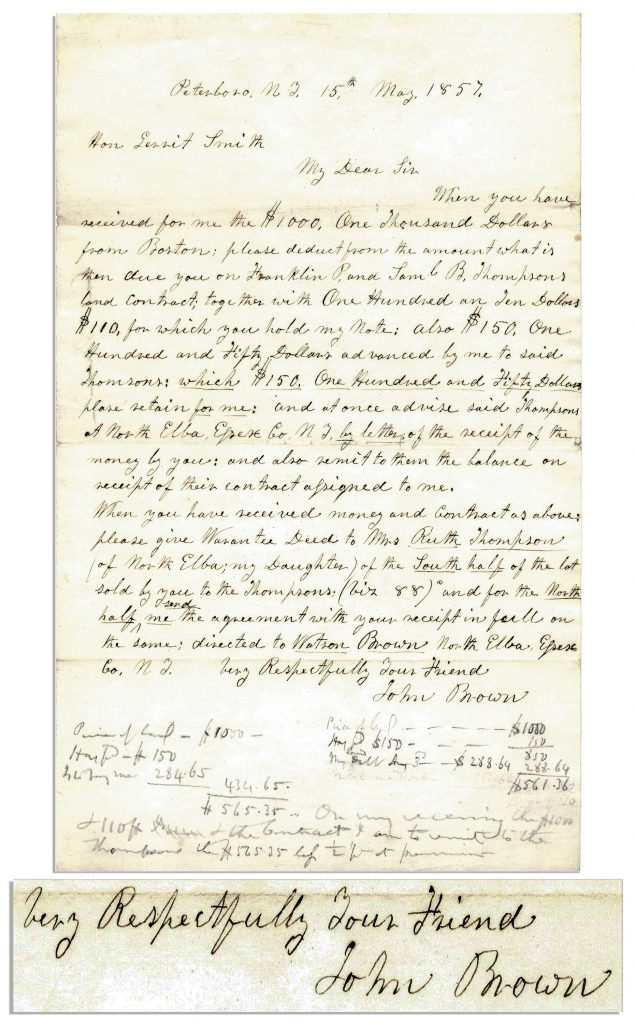 Peterboro, N Y. 15th May, 1857.
Hon Gerrit Smith
My Dear Sir
When you have
received for me the $1000, One Thousand Dollars
from Boston; please deduct from the amount what is
then due you on Franklin P, and Saml B, Thompsons
land contract; together with One Hundred an Ten Dollars
$110, for which you hold my Note: also $150. One
Hundred and Fifty Dollars advanced by me to said
Thomsons: which $150. One Hundred and Fifty Dollars
please retain for me: and at once advise said Thompsons
at North Elba, Essex Co, N Y, by letter, of the receipt of the
money by you: and also remit to them the balance on
receipt of their contract assigned to me.
When you have received money and Contract as above;
please give Warantee Deed to Mrs Ruth Thompson
(of North Elba; my Daughter) of the South half of the lot
sold by you to the Thompsons; (viz 88) and for the North
half send me the agreement with your receipt in full on
the same; directed to Watson Brown North Elba Essex
Co, N Y. Very Respectfully Your Friend
John Brown
Price of land - $1000 -
$1000
Has pd - $150
Has pd $150 - 150
850
284.65
$288.64 288.64
434.65.
$561.36
$565.35 - On my receiving the $1000
& $110 & the Contract I am to remit to the
Thompsons the $565.35
Very Respectfully Your Friend
John Brown